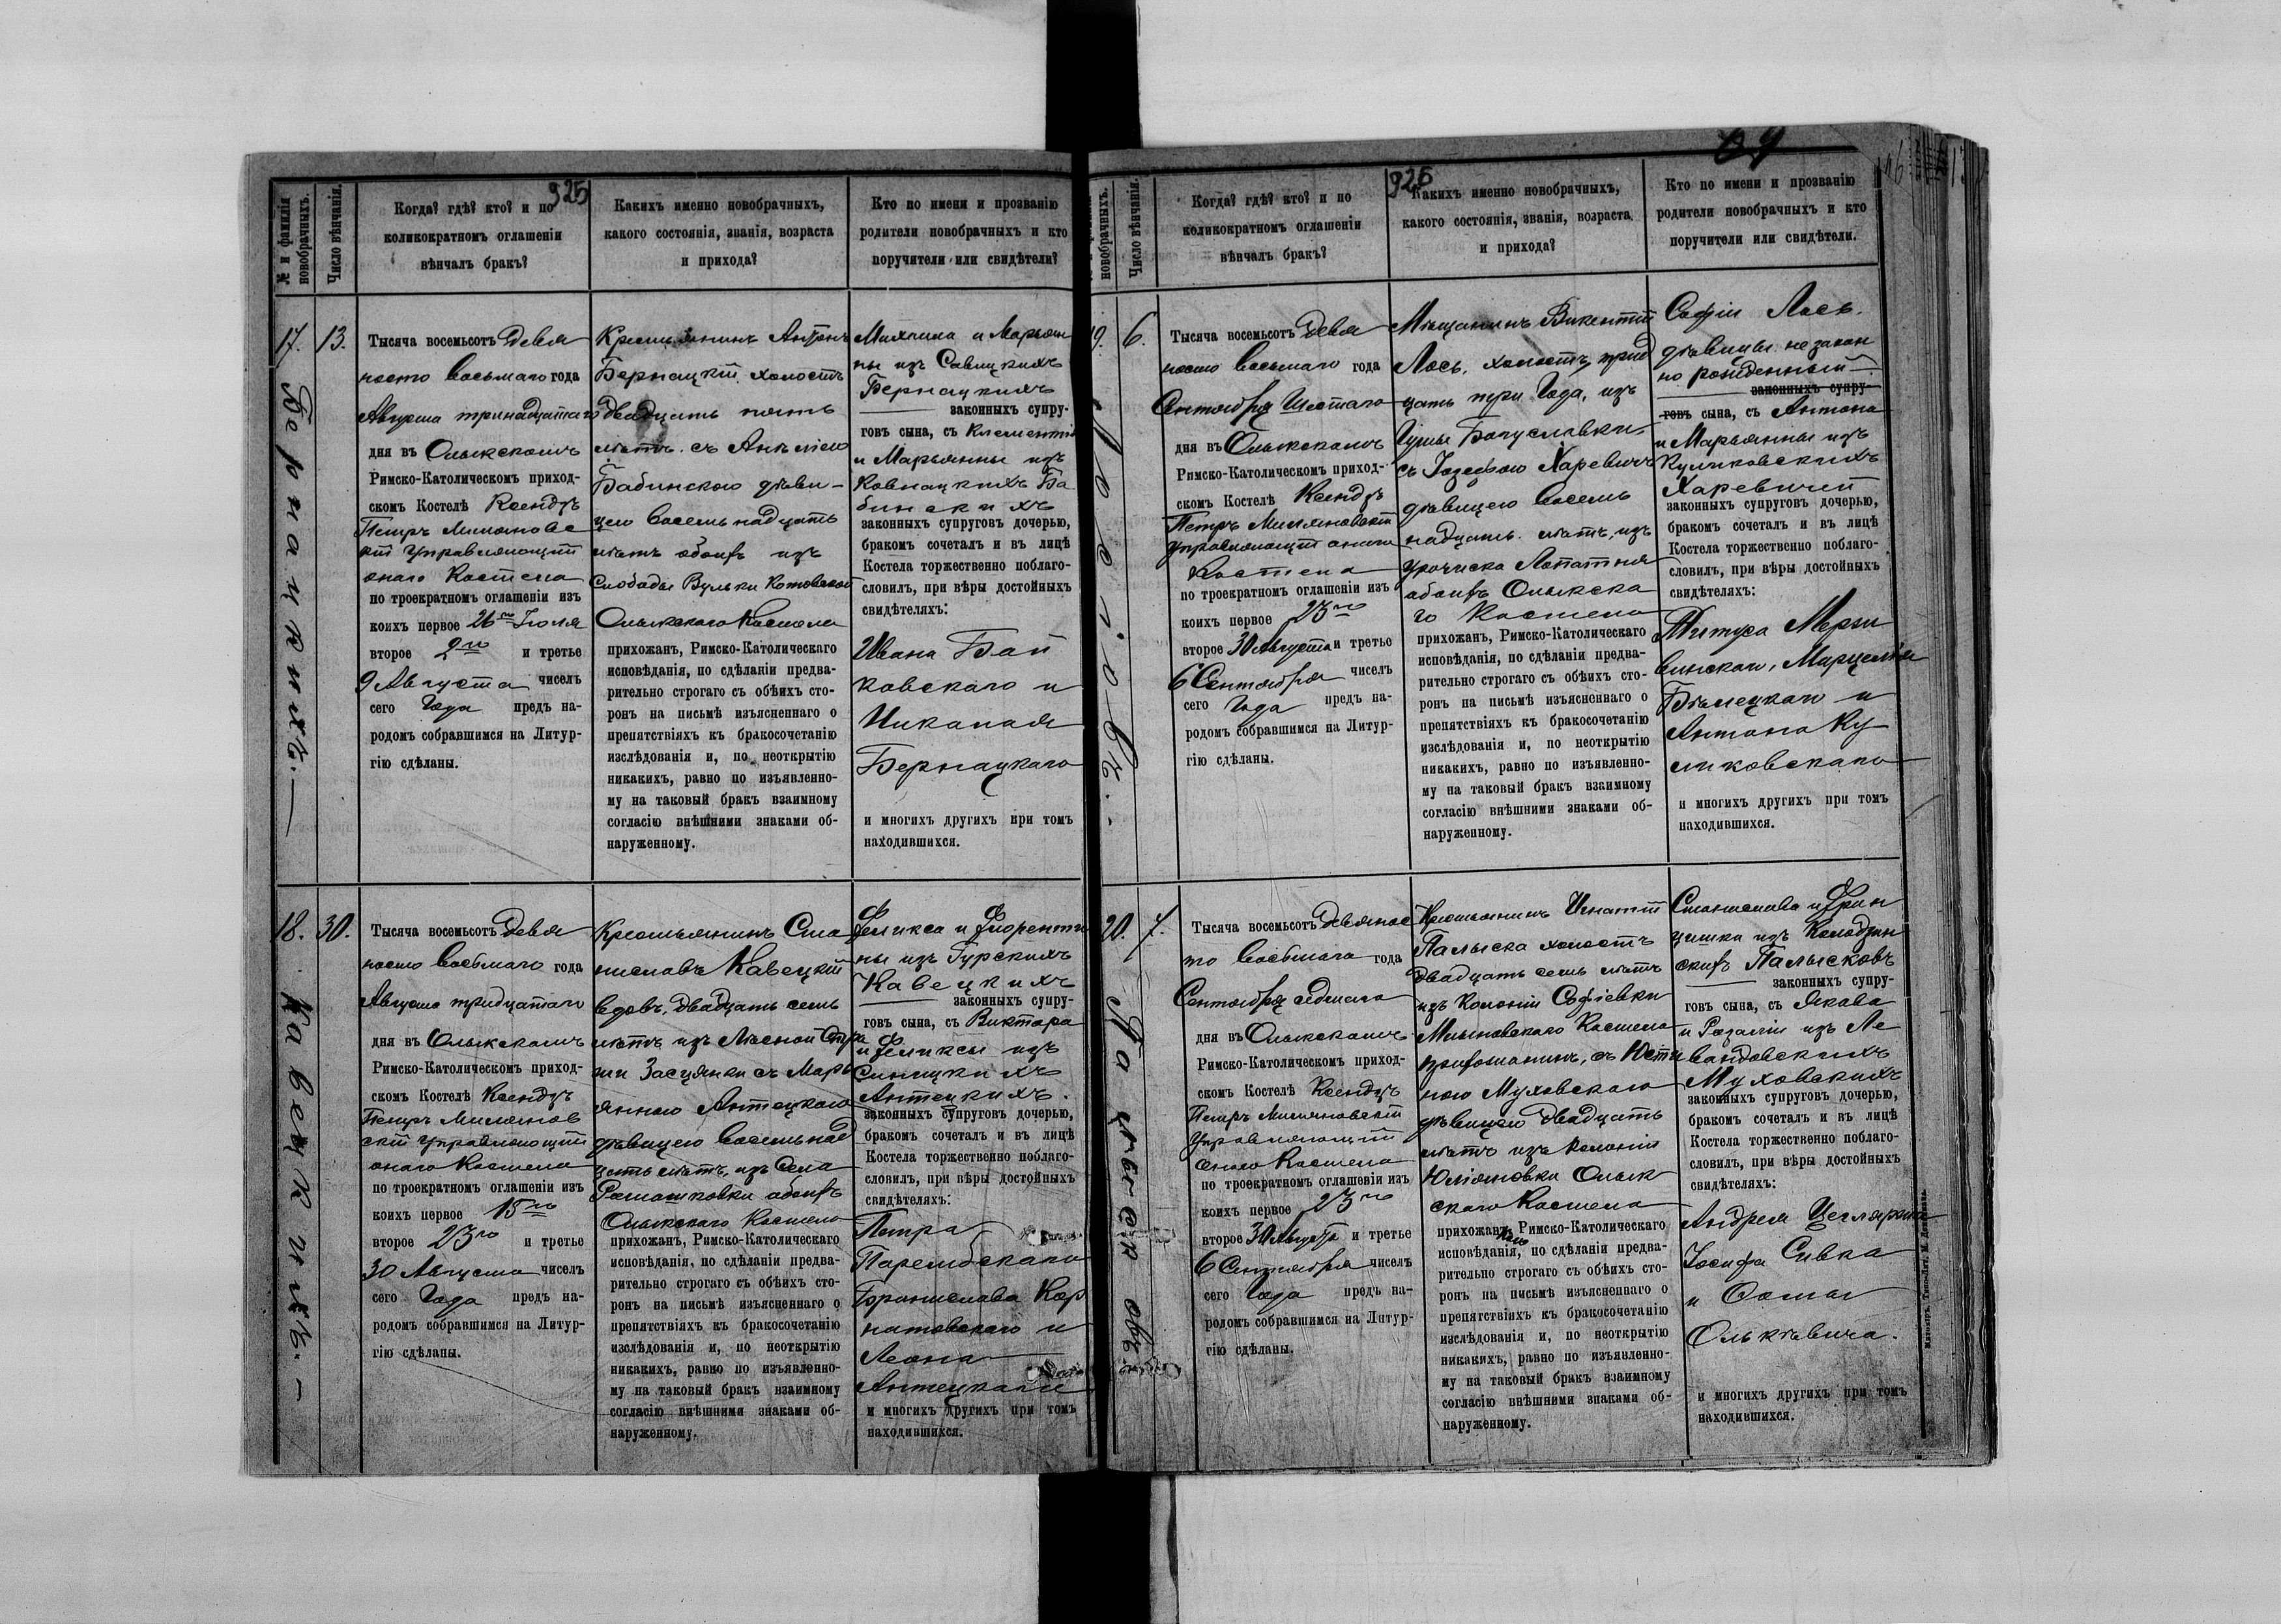 925
№ и фамилія новобрачныхъ.
Число вѣнчанія.
Когда? гдѣ? кто? и по
коликократномъ оглашеніи
вѣнчалъ бракъ?
Какихъ именно новобрачныхъ,
какого состоянія, званія, возраста
и прихода?
Кто по имени и прозванію
родители новобрачныхъ и кто
поручители или свидѣтели?
17.
Бернацкихъ.
13.
Тысяча восемьсотъ девя
носто восьмаго года
Августа тринадцатаго
дня въ Олыкскомъ
Римско-Католическомъ приход-
скомъ Костелѣ Ксендзъ
Петръ
Управляющій
онаго Костела
по троекратномъ оглашеніи изъ
коихъ первое 26го Іюля
второе 2го и третье
9 Августа чиселъ
сего Года предъ на-
родомъ собравшимся на Литур-
гію сдѣланы.
Крестьянинъ Антонъ
Бернацкій холостъ
двадцать пять
лѣтъ. съ Анѣлею
Бабинскою дѣви-
цею восемьнадцать
лѣтъ обоихъ изъ
Слободы Вульки Котовской
Олыкскаго Костела
прихожанъ, Римско-Католическаго
исповѣданія, по сдѣланіи предва-
рительно строгаго съ обѣихъ сто-
ронъ на письмѣ изъясненнаго о
препятствіяхъ къ бракосочетанію
изслѣдованія и, по неоткрытію
никакихъ, равно по изъявленно-
му на таковый бракъ взаимному
согласію внѣшними знаками об-
наруженному.
Михаила и Марьян
ны изъ Савицкихъ
Бернацкихъ
законныхъ супру-
говъ сына, съ Климентія
и Марьянны изъ
Ковнацкихъ Ба
бинскихъ
законныхъ супруговъ дочерью,
бракомъ сочеталъ и въ лицѣ
Костела торжественно поблаго-
словилъ, при вѣры достойныхъ
свидѣтеляхъ:
Ивана Бай
ковскаго и
Николая
Бернацкаго
и многихъ другихъ при томъ
находившихся.
18.
Кавецкихъ.
30.
Тысяча восемьсотъ девя
носто восьмаго года
Августа тридцатаго
дня въ Олыкскомъ
Римско-Католическомъ приход-
скомъ Костелѣ Ксендзъ
Петръ Милянов
скій Управляющій
онаго Костела
по троекратномъ оглашеніи изъ
коихъ первое 15го
второе 23го и третье
30 Августа чиселъ
сего Года предъ на-
родомъ собравшимся на Литур-
гію сдѣланы.
Крестьянинъ Ста
ниславъ Кавецкій
вдовъ, двадцать семь
лѣтъ изъ Лѣсной Стра
жи Засцянки съ Марь
янною Антецкою
дѣвицею восемьнад
цать лѣтъ, изъ Села
Ромашковки обоихъ
Олыкскаго Костела
прихожанъ, Римско-Католическаго
исповѣданія, по сдѣланіи предва-
рительно строгаго съ обѣихъ сто-
ронъ на письмѣ изъясненнаго о
препятствіяхъ къ бракосочетанію
изслѣдованія и, по неоткрытію
никакихъ, равно по изъявленно-
му на таковый бракъ взаимному
согласію внѣшними знаками об-
наруженному.
Феликса и Флоренти
ны изъ Гурскихъ
Кавецкихъ
законныхъ супру-
говъ сына, съ Виктора
и Феликсы изъ
Синицкихъ
Антецкихъ.
законныхъ супруговъ дочерью,
бракомъ сочеталъ и въ лицѣ
Костела торжественно поблаго-
словилъ, при вѣры достойныхъ
свидѣтеляхъ:
Петра
Парембскаго
Бронислава Кор
натовскаго и
Леона
Антецкаго
и многихъ другихъ при томъ
находившихся.
926
новобрачныхъ.
Число вѣнчанія.
Когда? гдѣ? кто? и по
коликократномъ оглашеніи
вѣнчалъ бракъ?
Какихъ именно новобрачныхъ,
какого состоянія, званія, возраста.
и прихода?
Кто по имени и прозванію
родители новобрачныхъ и кто
поручители или свидѣтели.
19.
6.
Тысяча восемьсотъ девя
носто восьмаго года
Сентября Шестаго
дня въ Олыкскомъ
Римско-Католическомъ приход-
скомъ Костелѣ Ксендзъ
Петръ Миляновскій
Управляющій онаго
Костела
по троекратномъ оглашеніи изъ
коихъ первое 23го
второе 30 Августа и третье
6 Сентября чиселъ
сего Года предъ на-
родомъ собравшимся на Литур-
гію сдѣланы.
Мѣщанинъ Викентій
Лось, холостъ, трид
цать три Года, изъ
Гуты Богуславки
съ Іозефою Харевичъ
дѣвицею восемь
надцать лѣтъ, изъ
урочиска Лопатня
обоихъ Олыкска
го Костела
прихожанъ, Римско-Католическаго
исповѣданія, по сдѣланіи предва-
рительно строгаго съ обѣихъ сто-
ронъ на письмѣ изъясненнаго о
препятствіяхъ къ бракосочетанію
изслѣдованія и, по неоткрытію
никакихъ, равно по изъявленно-
му на таковый бракъ взаимному
согласію внѣшними знаками об-
наруженному.
Софіи Лось.
дѣвицы незакон
но рожденный
законныхъ супру-
говъ сына, съ Антона
и Марьянны изъ
Куликовскихъ
Харевичей
законныхъ супруговъ дочерью,
бракомъ сочеталъ и въ лицѣ
Костела торжественно поблаго-
словилъ, при вѣры достойныхъ
свидѣтеляхъ:
Титуса Мерзи
винскаго, Марцелія
Бѣлецкаго и
Антона Ку
ликовскаго
и многихъ другихъ при томъ
находившихся.
20.
7.
Тысяча восемьсотъ девянос
то восьмаго года
Сентября седмаго
дня въ Олыкскомъ
Римско-Католическомъ приход-
скомъ Костелѣ Ксендзъ
Петръ Миляновскій
Управляющій
онаго Костела
по троекратномъ оглашеніи изъ
коихъ первое 23го
второе 30 Августа и третье
6 Сентября чиселъ
сего Года предъ на-
родомъ собравшимся на Литур-
гію сдѣланы.
Крестьянинъ Игнатій
Палыска холостъ
двадцать семь лѣтъ
изъ Колоніи Софіевки
Млыновскаго Костела
прихожанинъ, съ Юсти
ною Муховскою
дѣвицею двадцать
лѣтъ изъ Колоніи
Юліяновки Олык
скаго Костела
прихожанъ, Римско-Католическаго
исповѣданія, по сдѣланіи предва-
рительно строгаго съ обѣихъ сто-
ронъ на письмѣ изъясненнаго о
препятствіяхъ къ бракосочетанію
изслѣдованія и, по неоткрытію
никакихъ, равно по изъявленно-
му на таковый бракъ взаимному
согласію внѣшними знаками об-
наруженному.
Станислава и Фран
цишки изъ Колодзин
скихъ Палысковъ
законныхъ супру-
говъ сына, съ Якова
и Розаліи изъ Ле
вандовскихъ
Муховскихъ
законныхъ супруговъ дочерью,
бракомъ сочеталъ и въ лицѣ
Костела торжественно поблаго-
словилъ, при вѣры достойныхъ
свидѣтеляхъ:
Андрея
Іосифа Сивка
и Фомы
Олькѣвича.
и многихъ другихъ при томъ
находившихся.